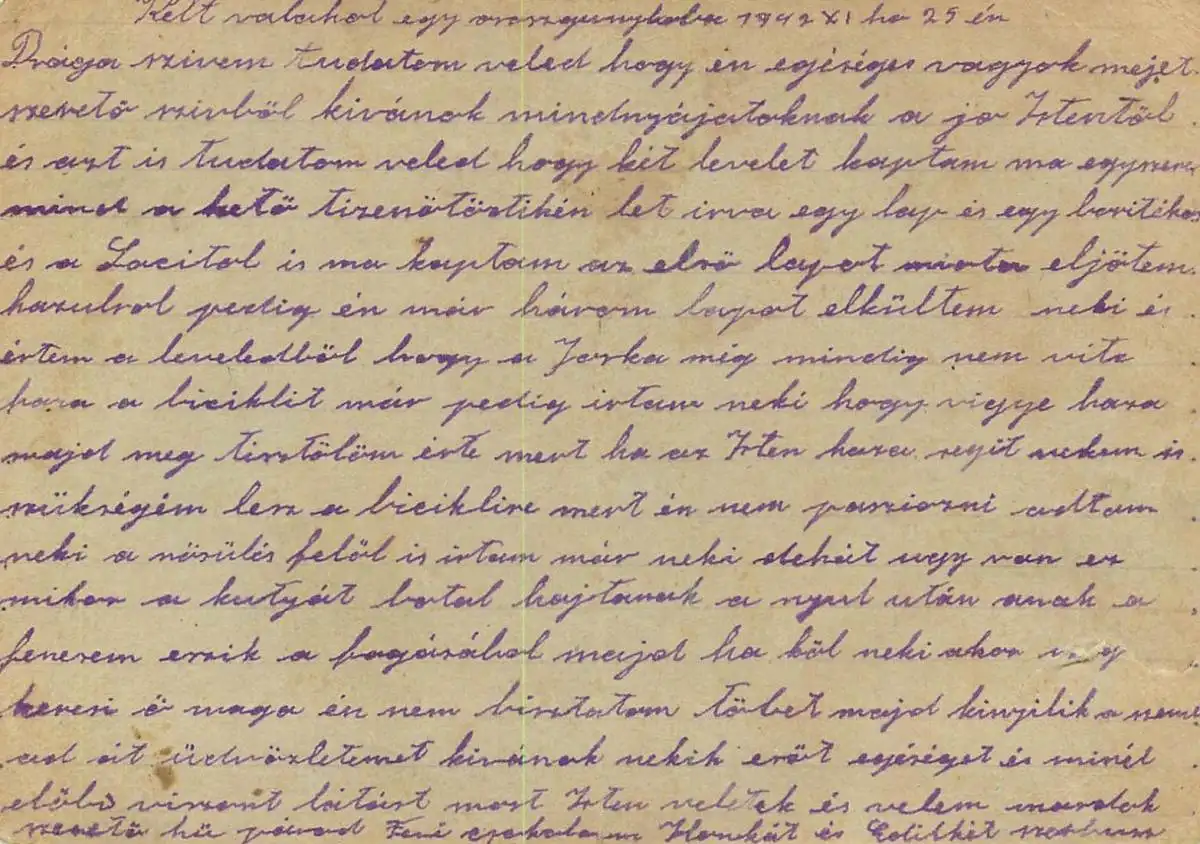 Kelt valahol egy oroszgunyhoba 1942 XI ho 25 én
Drága szivem tudatom veled hogy én egéséges vagyok mejet
szerető szivből kivánok mindnyájatoknak a jo Istentöl
és azt is tudatom veled hogy két levelet kaptam ma egyszere
mind a kető tizenötödikén let irva egy lap és egy boritékos
és a Lacitol is ma kaptam az elsö lapot miota eljötem
hazulrol pedig én már három lapot elkültem neki és
értem a leveledböl hogy a Joska még mindig nem vite
haza a biciklit már pedig irtam neki hogy vigye haza
majd meg tisztölöm érte mert ha az Isten haza segit nekem is
szükségém lesz a biciklire mert én nem pasziozni adtam
neki a nösülés felöl is irtam már neki dehát ugy van ez
mikor a kutyát botal hajtanak a nyul után anak a
fenesem eszik a fogásábol majd ha köl neki akor meg
keresi ö maga én nem bisztatom töbet majd kinyilik a
ad át üdvözletemet kivánok nekik eröt egéséget és minél
elöbi viszont látást most Isten veletek és velem maradok
szeretö hü párod Feri csokolom Ilonkát és Editkét